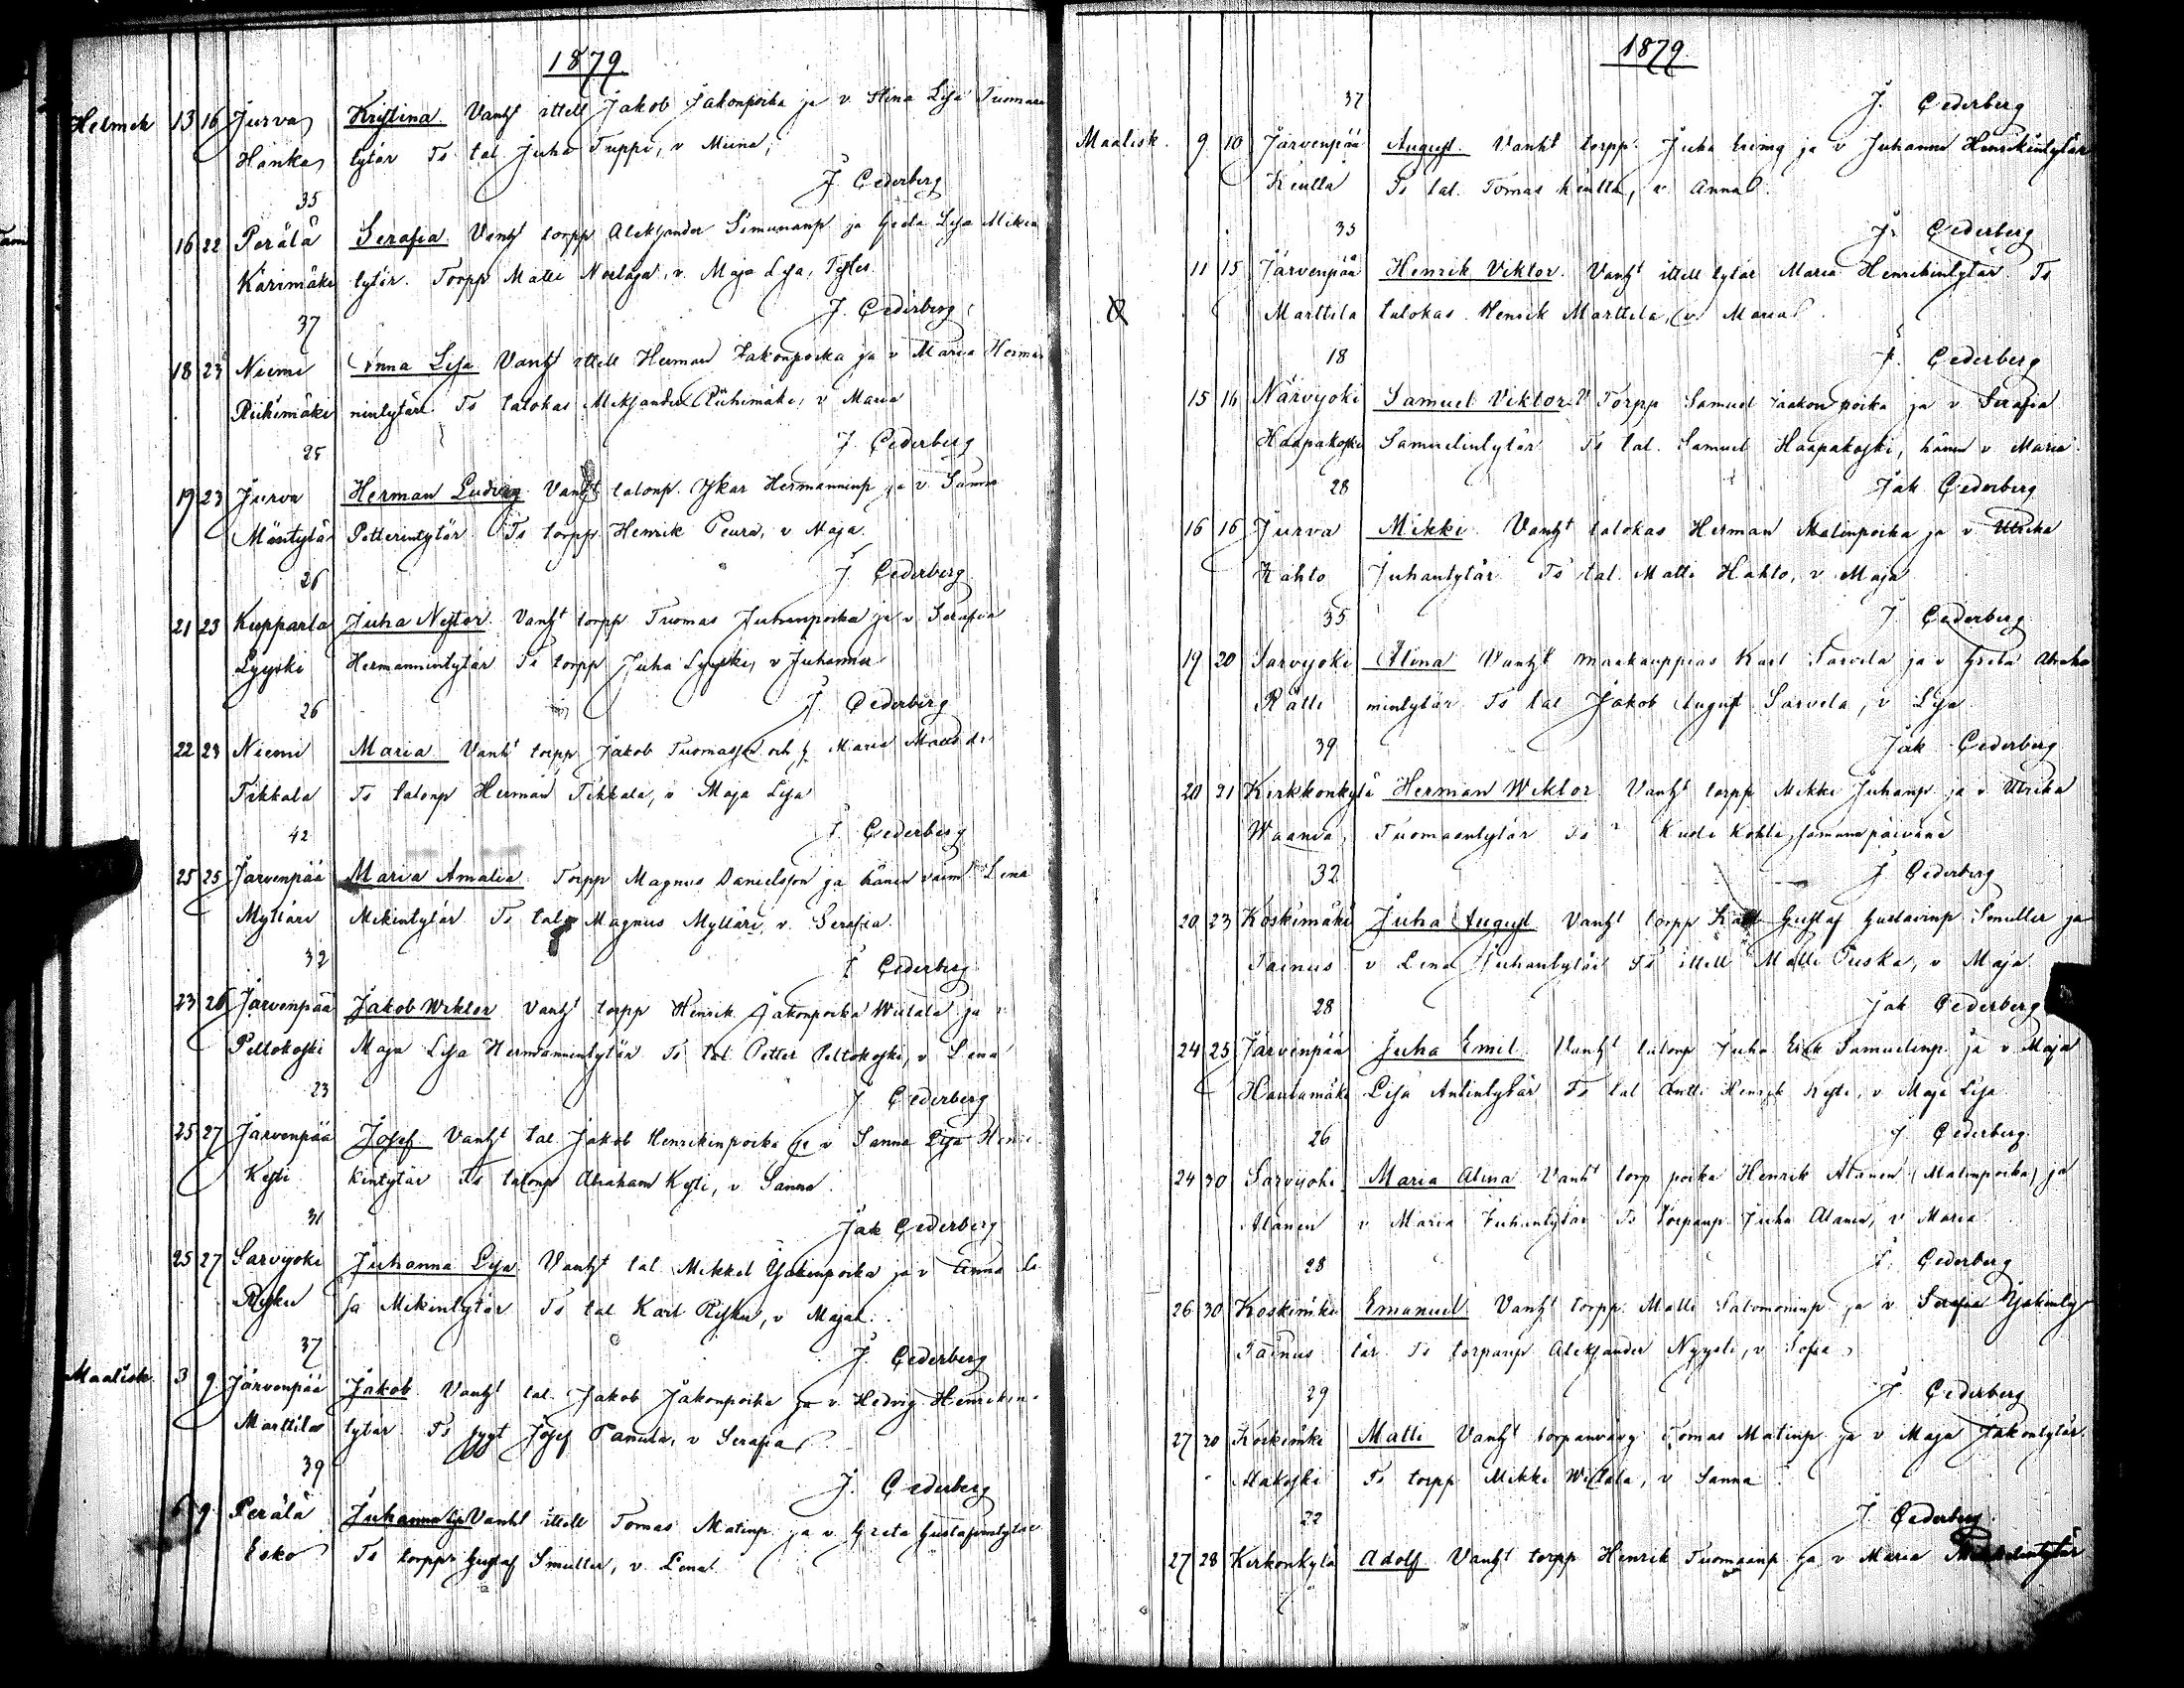 1879
Helmik 13 16 Jurva Kristina Vanht ittell Jakob Jakonpoika ja v. Stina Lisa Tuomaan
Hänka tytär Ts tal Juha Tuppi, v Miina,
J. Cederberg
35
16 22 Perälä Serafia Vanht torpp Aleksander Simunanp ja Greta Lisa Mikin
Kärimäki tytär. Torpp Matti, v. Maja Lisa,
J. Cederberg
37
18 23 Niemi Anna Lisa Vanht ittell Herman Jakonpoika ja v Maria Herman
Riihimäki nintytär Ts talokas Aleksander Riihimäki, v Maria
J. Cederberg
25
19 23 Jurva Herman Ludvig Vanht talonp. Iskar Hermanninp ja v. Sanna
Mäntylä Petterintytär Ts torpp Henrik Peura, v Maja
J. Cederberg
26
21 23 Kupparla Juha Nestor Vanht torpp Tuomas Juhanpoika ja v Serafia
Lyyski Hermannintytär Ts torpp Juha Lyyski, v Juhanna
J. Cederberg
26
22 23 Niemi Maria Vanht torpp Jakob Tuomasson och h Maria Matts dr
Tikkala Ts talonp Herman Tikkala, v Maja Lisa
J. Cederberg
42
25 25 Järvenpää Maria Amalia Torpp Magnus Danielsson ja hänen vaim Lena
Myllari Mikintytär Ts tal Magnus Myllari, v. Serafia
J Cederberg
32
23 26 Järvenpää Jakob Wiktor Vanht torpp Henrik Jakonpoika Wiitala ja v
Peltokoski Maja Lisa Hermannintytär Ts tal Petter Peltokoski, v Lena
J Cederberg
23
25 27 Järvenpää Josef Vanht tal Jakob Henrikinpoika ja v Sanna Lisa Henri
Kesti kintytär Ts talonp Abraham Kesti, v Sanna
Jak Cederberg
31
25 27 Sarvijoki Juhanna Lisa Vanht tal Mikkel Yjakinpoika ja v Anna Li
Risku sa Mikintytär Ts tal Karl Risku, v Maja
J. Cederberg
37
Maalisk. 3 9 Järvenpää Jakob Vanht tal. Jakob Jakonpoika ja v. Hedvig Henrikin
Marttila tytär. Ts Josef Panula, v Serafia
J. Cederberg
39
6 9 Perälä Juhanna Lisa Vanht ittell Tomas Matinp ja v. Greta Gustafintytär
Esko Ts torpp Gustaf Smuller, v. Lena
1879.
37 J. Cederberg
Maalisk. 9 10 Järvenpää August. Vanht torpp. Juha ja v Juhanna Henrikintytär
Keulla Ts tal. Tomas Keulla, v. Anna
33 J. Cederberg
11 15 Järvenpää Henrik Viktor. Vanht ittell tytär Maria Henrikintytär Ts
Marttila talokas Henrik Marttila, v. Maria
18 J. Cederberg
15 16 Närvijoki Samuel Viktor V Torpp Samuel Jaakonpoika ja v Serafia
Haapakoski Samuelintytär Ts tal. Samuel Haapakoski, hänen v Maria
28 Jak Cederberg
16 16 Jurva Mikki Vanht talokas Herman Matinpoika ja v Ulrika
Kahto Juhantytär Ts tal. Matti Hahto, v Maja
35 J Cederberg
19 20 Sarvijoki Alina Vanht maakauppias Karl Sarvela ja v Greta Abraha
Rätti mintytär Ts tal Jakob August Sarvela, v Lisa
39 Jak Cederberg
20 21 Kirkkonkylä Herman Wiktor Vanht torpp Mikki Juhanp ja v Ulrika
Waania Tuomaantytär Ts Kusti Kohli, samana päivänä
32 J Cederberg
20 23 Koskimäki Juha August Vanht torpp Gustaf Gustavinp Smuller ja
Tainus v Lena Juhantytär Ts ittell Matti Tuska, v Maja
28 Jak Cederberg
24 25 Järvenpää Juha Emil Vanht talonp Juha Erik Samuelinp ja v Maja
Hautamäki Lisa Antintytär Ts tal Antti Henrik Kesti, v Maja Lisa
26 J Cederberg
24 30 Sarvijoki Maria Alina Vanht torp poika Henrik Alanen (Matinpoika) ja
Alanen v Maria Juhantytär Ts torpanp Juha Alanen, v Maria
28 J. Cederberg
26 30 Koskimäki Emanuel Vanht torpp. Matti Salomoninp ja v Serafia Yjakinty
Tainus tär. Ts torpanp Aleksander Nyysti, v Sofia
29 J Cederberg
27 30 Koskimäki Matti Vanht torpanvävy Tomas Matinp ja v Maja Jakontytär
Alakoski Ts torpp Mikki Wiitala, v Sanna
22 J Cederberg
27 28 Kirkonkylä Adolf Vanht torpp Henrik Tuomaanp ja v Maria